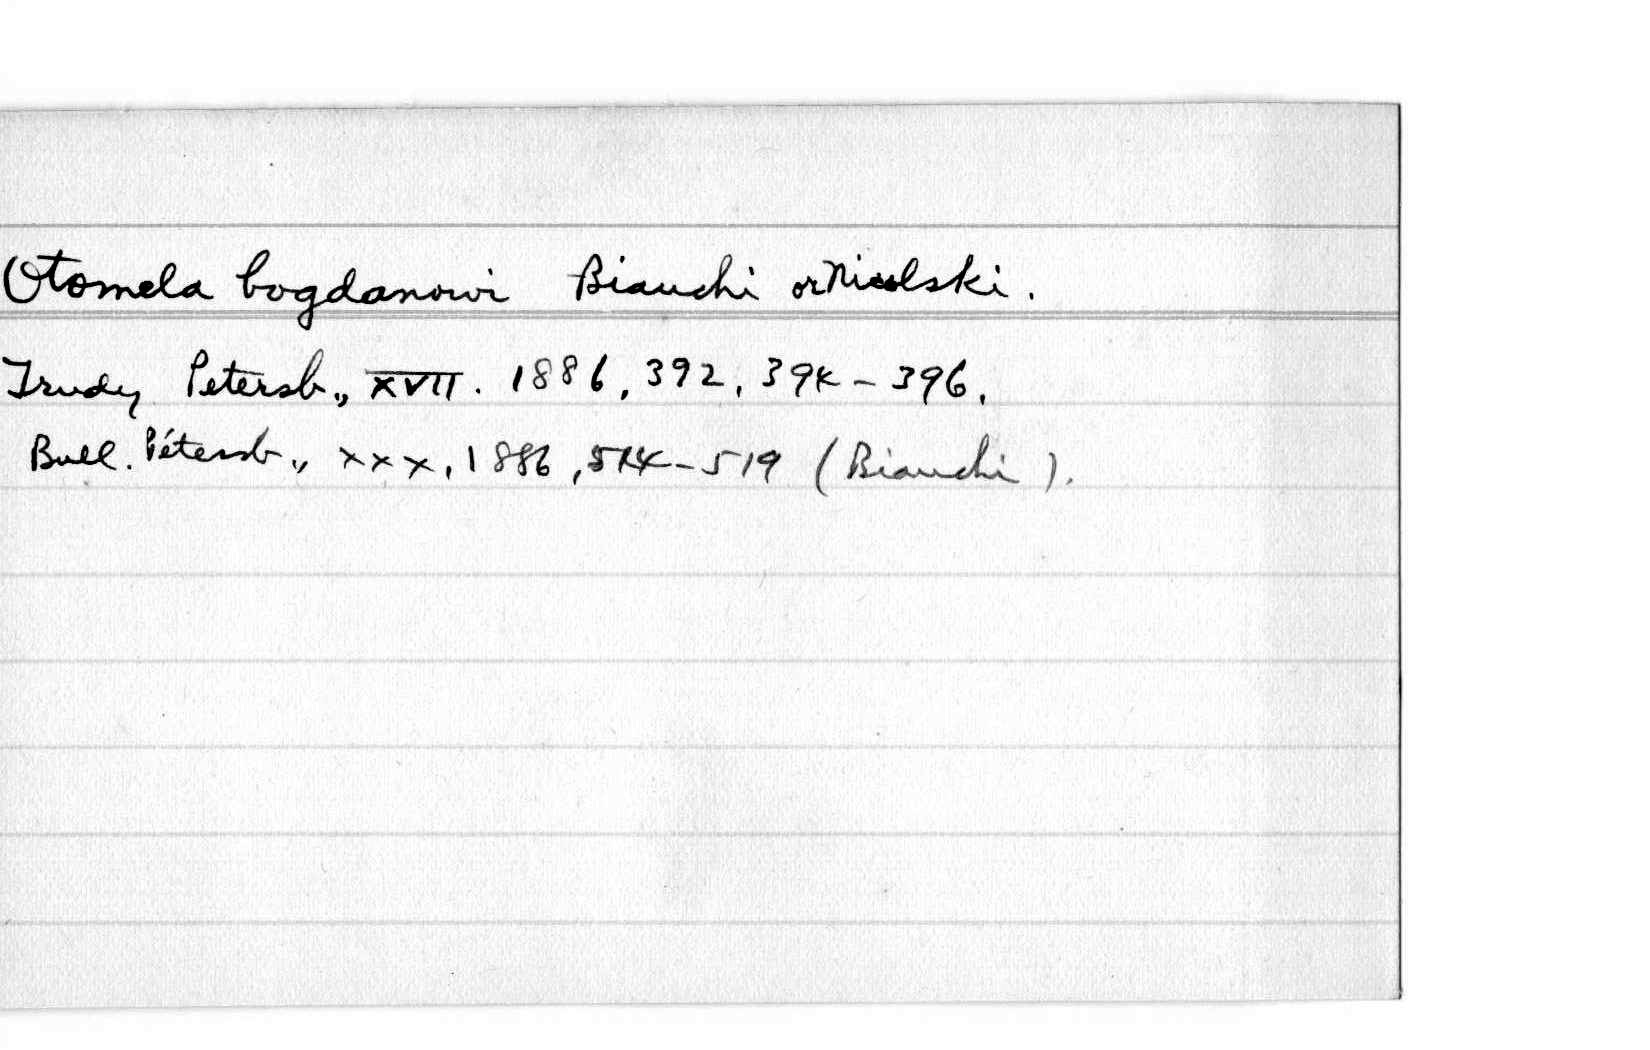 Otomela bogdanowi Bianchi or Nicolski.
Trudy Petersb., XVII. 1886, 392, 394-396.
Bull. Pétersb., xxx, 1886, 514-519 (Bianchi).